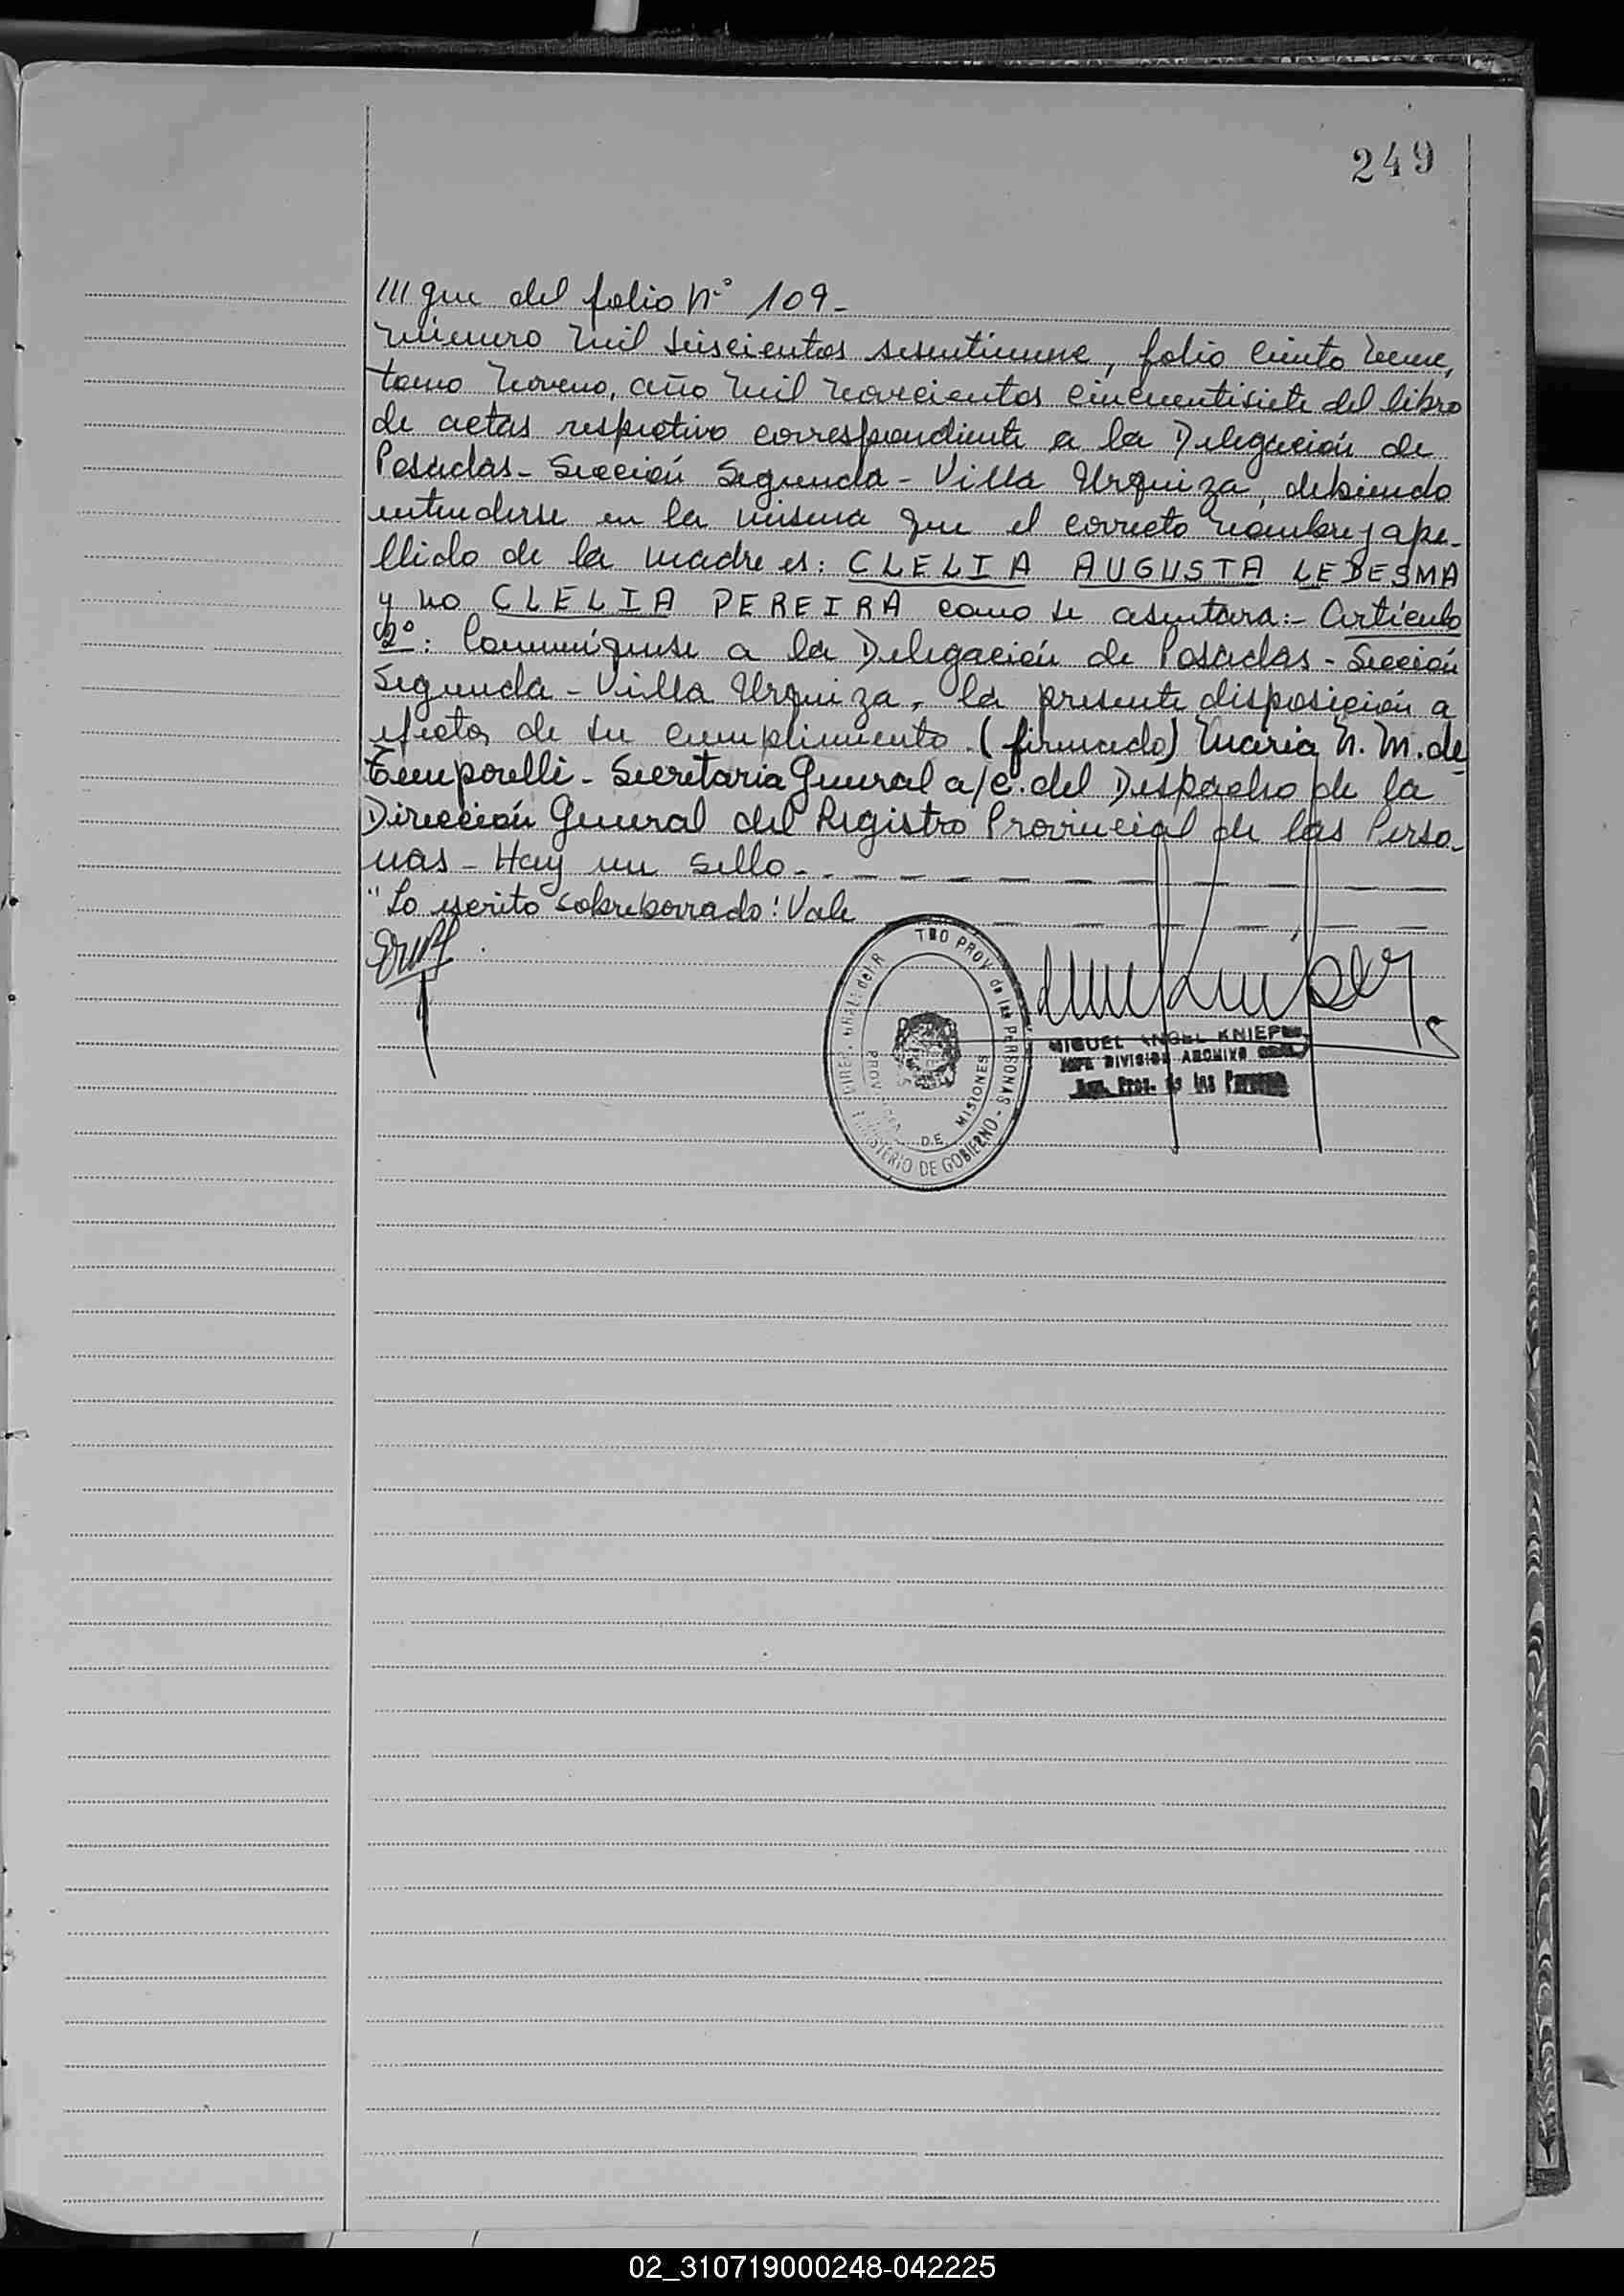 249
III que del folio N° 109-
número mil seiscientos sesentinueve, folio ciento nueve,
tomo noveno, año mil novecientos cincuentisiete del libro
de actas respectivo correspondiente a la Delegación de
Posadas - Sección Segunda - Villa Urquiza, debiendo
entenderse en la misma que el correcto nombre y ape-
llido de la madre es: CLELIA AUGUSTA LEDESMA
y no CLELIA PEREIRA como se asentara:- Artículo
2°: Comuníquese a la Delegación de Posadas - Sección
Segunda - Villa Urquiza, la presente disposición a
efectos de su cumplimiento. (firmado) María N. M. de
Temporelli - Secretaria General a/c. del Despacho de la
Dirección General del Registro Provincial de las Perso-
nas - Hay un sello.-
"Lo escrito sobreborrado: Vale
PROV. de las PERSONAS - MINISTERIO DE GOBIERNO
DE MISIONES
MIGUEL ANGEL KNIEPE
JEFE DIVISION ARCHIVO GRAL.
Prov. de las Personas
02_310719000248-042225